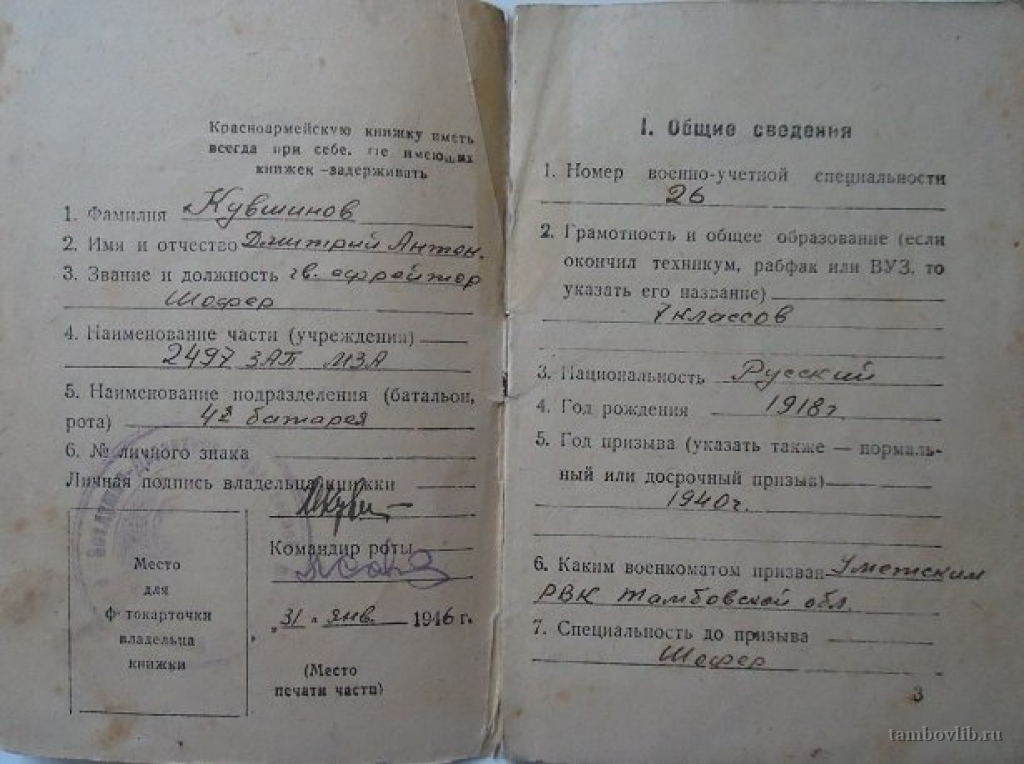 Красноармейскую книжку иметь
всегда при себе. Не имеющих
книжек -задерживать
1. Фамилия Кувшинов
2. Имя и отчество Дмитрий Антон.
3. Звание и должность гв. ефрейтор
Шофер
4. Наименование части (учреждения)
2497 ЗАП МЗА
5. Наименование подразделения (батальон,
рота) 4я батарея
6. № личного знака
Личная подпись владельца книжки
Командир роты
Место
для
фотокарточки
владельца
книжки
„31" янв. 1946 г.
(Место
печати части)
I. Общие сведения
1. Номер военно-учетной специальности
26
2. Грамотность и общее образование (если
окончил техникум, рабфак или ВУЗ, то
указать его название)
7 классов
3. Национальность Русский
4. Год рождения 1918 г
5. Год призыва (указать также — нормаль-
ный или досрочный призыв)
1940 г.
6. Каким военкоматом призван Уметским
РВК Тамбовской обл.
7. Специальность до призыва
Шофер
3
tambovlib.ru